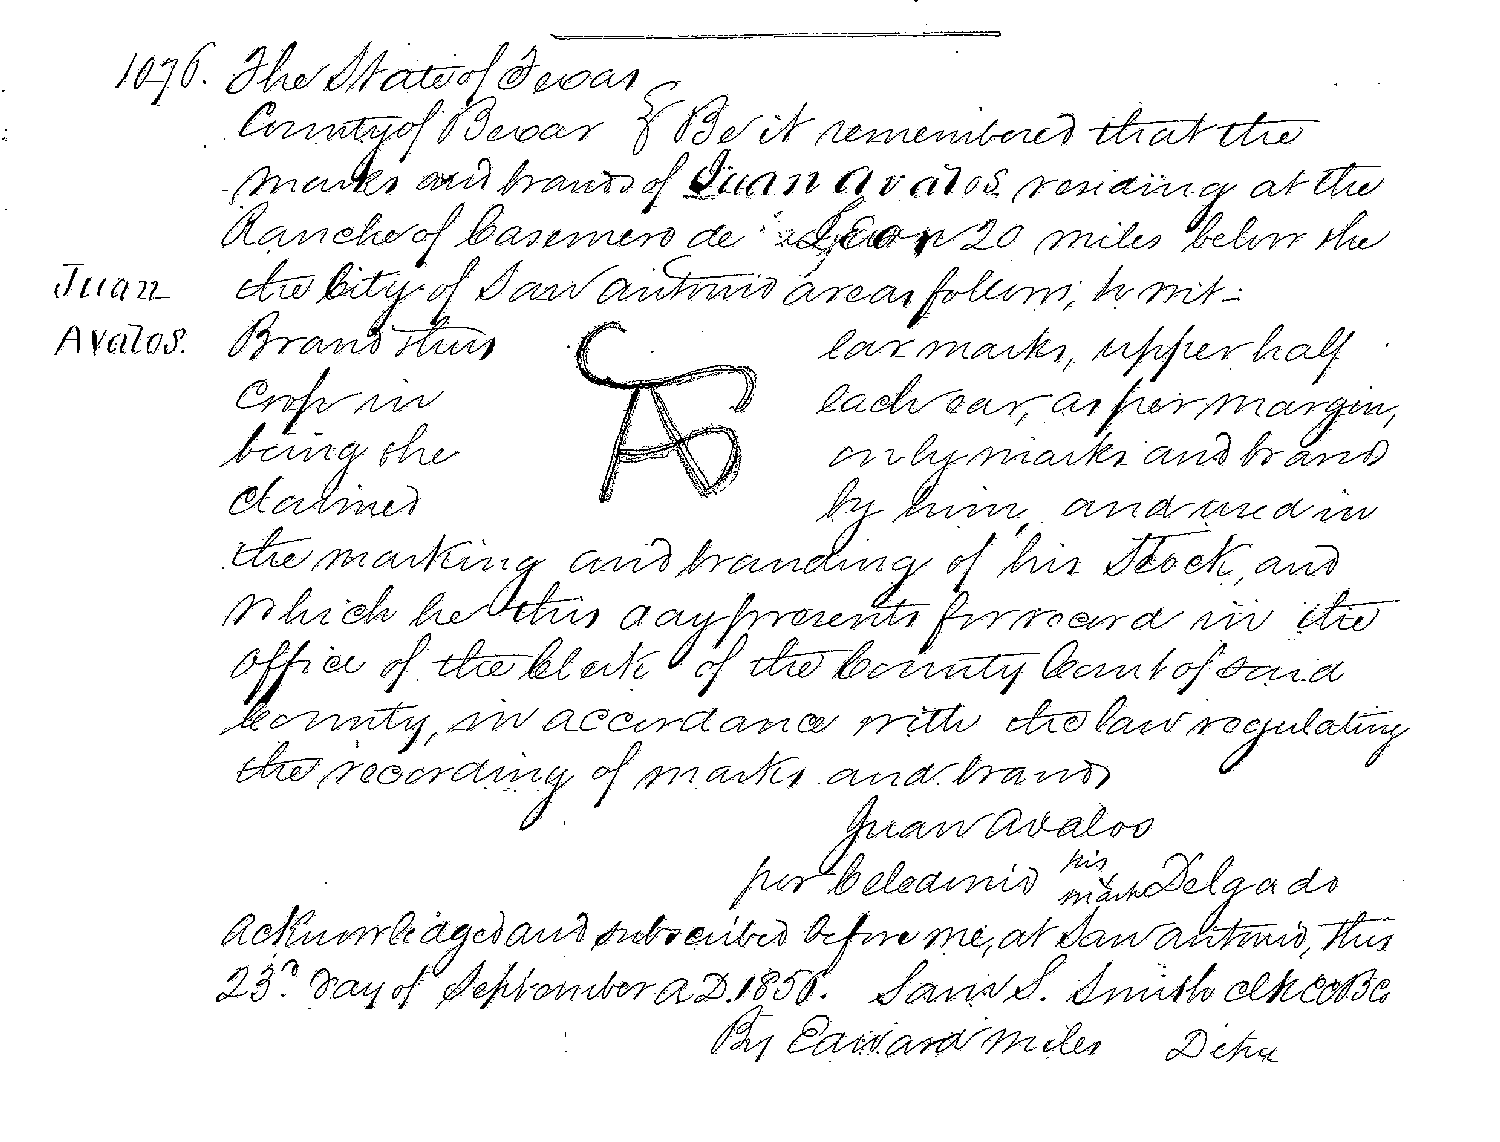 1076. The State of Texas
County of Bexar } Be it remembered that the
marks and brands of Juan Avalos residing at the
Rancho of Casemero de Leon 20 miles below the
Juan
the City of San Antonio are as follows, to wit:
Avalos.
Brand thus ear marks, upper half
Crop in each ear, as per margin,
being the only marks and brand
claimed by him, and used in
the marking and branding of his Stock, and
which he this day presents for record in the
office of the Clerk of the County Court of said
County, in accordance with the law regulating
the recording of marks and brands
Juan Avalos
per Celedonio his mark Delgado
Acknowledged and subscribed before me, at San Antonio, this
23rd day of September A.D. 1856. Sam S. Smith Clk CCBC
By Edward Miles